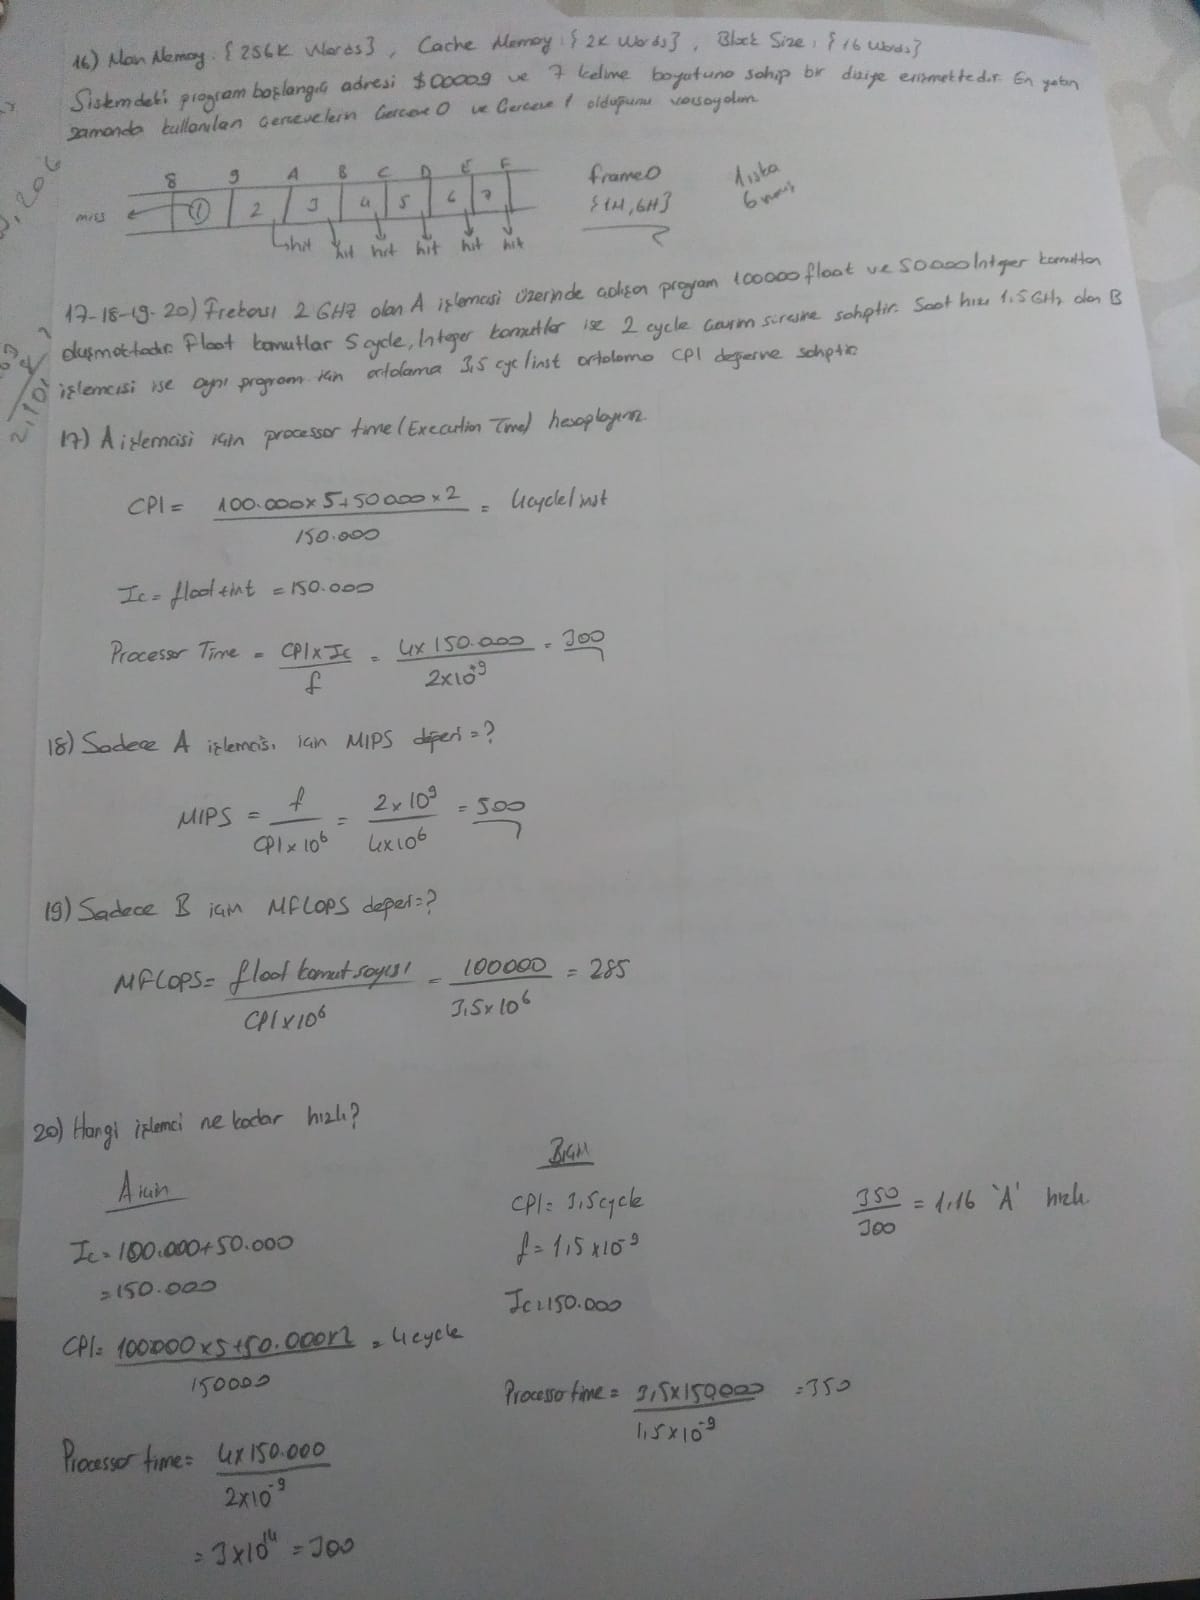 16) Man Memoy: {256K Words}, Cache Memory: {2K Words}, Block Size: {16 Words}
Sistemdeki program başlangıç adresi $00009 ve 7 kelime boyutuna sahip bir diziye erişmektedir. En yakın
zamanda kullanılan çerçevelerin Çerçeve 0 ve Çerçeve 1 olduğunu varsayalım.
8 9 A B C D E F
miss 1 2 3 4 5 6 7
hit hit hit hit hit hit
frame0
{1M, 6H}
1 ıska
6
17-18-19-20) Frekansı 2 GHZ olan A işlemcisi üzerinde çalışan program 100000 float ve 50000 Integer komuttan
oluşmaktadır. Float komutlar 5 cycle, Integer komutlar ise 2 cycle çevrim süresine sahiptir. Saat hızı 1.5 GHz olan B
işlemcisi ise aynı program için ortalama 3,5 cyc/inst ortalama CPI değerine sahiptir.
17) A işlemcisi için processor time (Execution Time) hesaplayınız.
CPI = 100.000x5+50000x2 / 150.000 = 4cycle/inst
Ic = float+int = 150.000
Processor Time = CPIxIc / f = 4x150.000 / 2x10⁻⁹ = 300
18) Sadece A işlemcisi için MIPS değeri = ?
MIPS = f / CPIx10⁶ = 2x10⁹ / 4x10⁶ = 500
19) Sadece B için MFLOPS değeri=?
MFLOPS= float komut sayısı / CPIx10⁶ = 100000 / 3,5x10⁶ = 285
20) Hangi işlemci ne kadar hızlı?
A için
Ic = 100.000+50.000
=150.000
CPI= 100000x5+50.000x2 / 150000 = 4cycle
Processor time= 4x150.000 / 2x10⁻⁹
= 3x10¹⁴ = 300
B için
CPI= 3,5cycle
f= 1,5x10⁻⁹
Ic=150.000
Processor time = 3,5x150,000 / 1,5x10⁻⁹ =350
350 / 300 = 1,16 'A' hızlı.